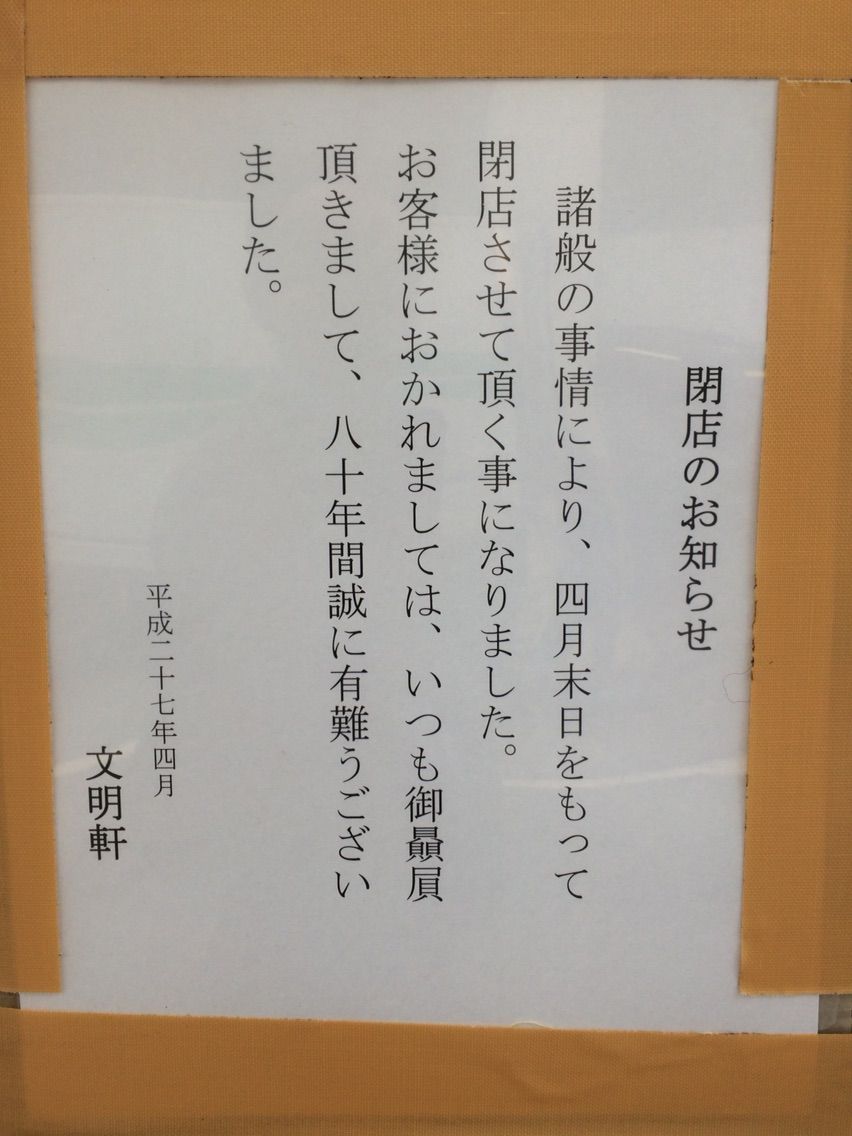 閉店のお知らせ
諸般の事情により、四月末日をもって
閉店させて頂く事になりました。
お客様におかれましては、いつも御贔屓
頂きまして、八十年間誠に有難うござい
ました。
平成二十七年四月
文明軒